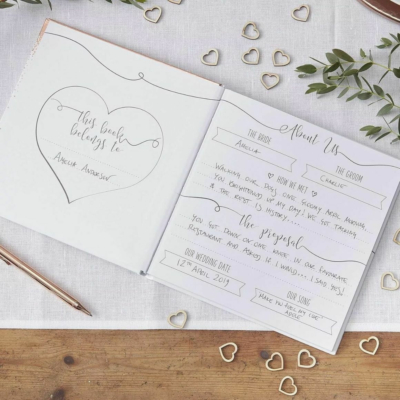 This book
belongs to
About Us
THE BRIDE
AMELIA
THE GROOM
CHARLIE
HOW WE MET
WALKING OUR DOGS ONE GLOOMY APRIL MORNING.
YOU BRIGHTENED UP MY DAY! WE GOT TALKING
& THE REST IS HISTORY....
The proposal
YOU GOT DOWN ON ONE KNEE IN OUR FAVOURITE
RESTAURANT AND ASKED IF I WOULD... I SAID YES!
OUR WEDDING DATE
12TH APRIL 2019
OUR SONG
MAKE YOU FEEL MY LOVE
ADELE